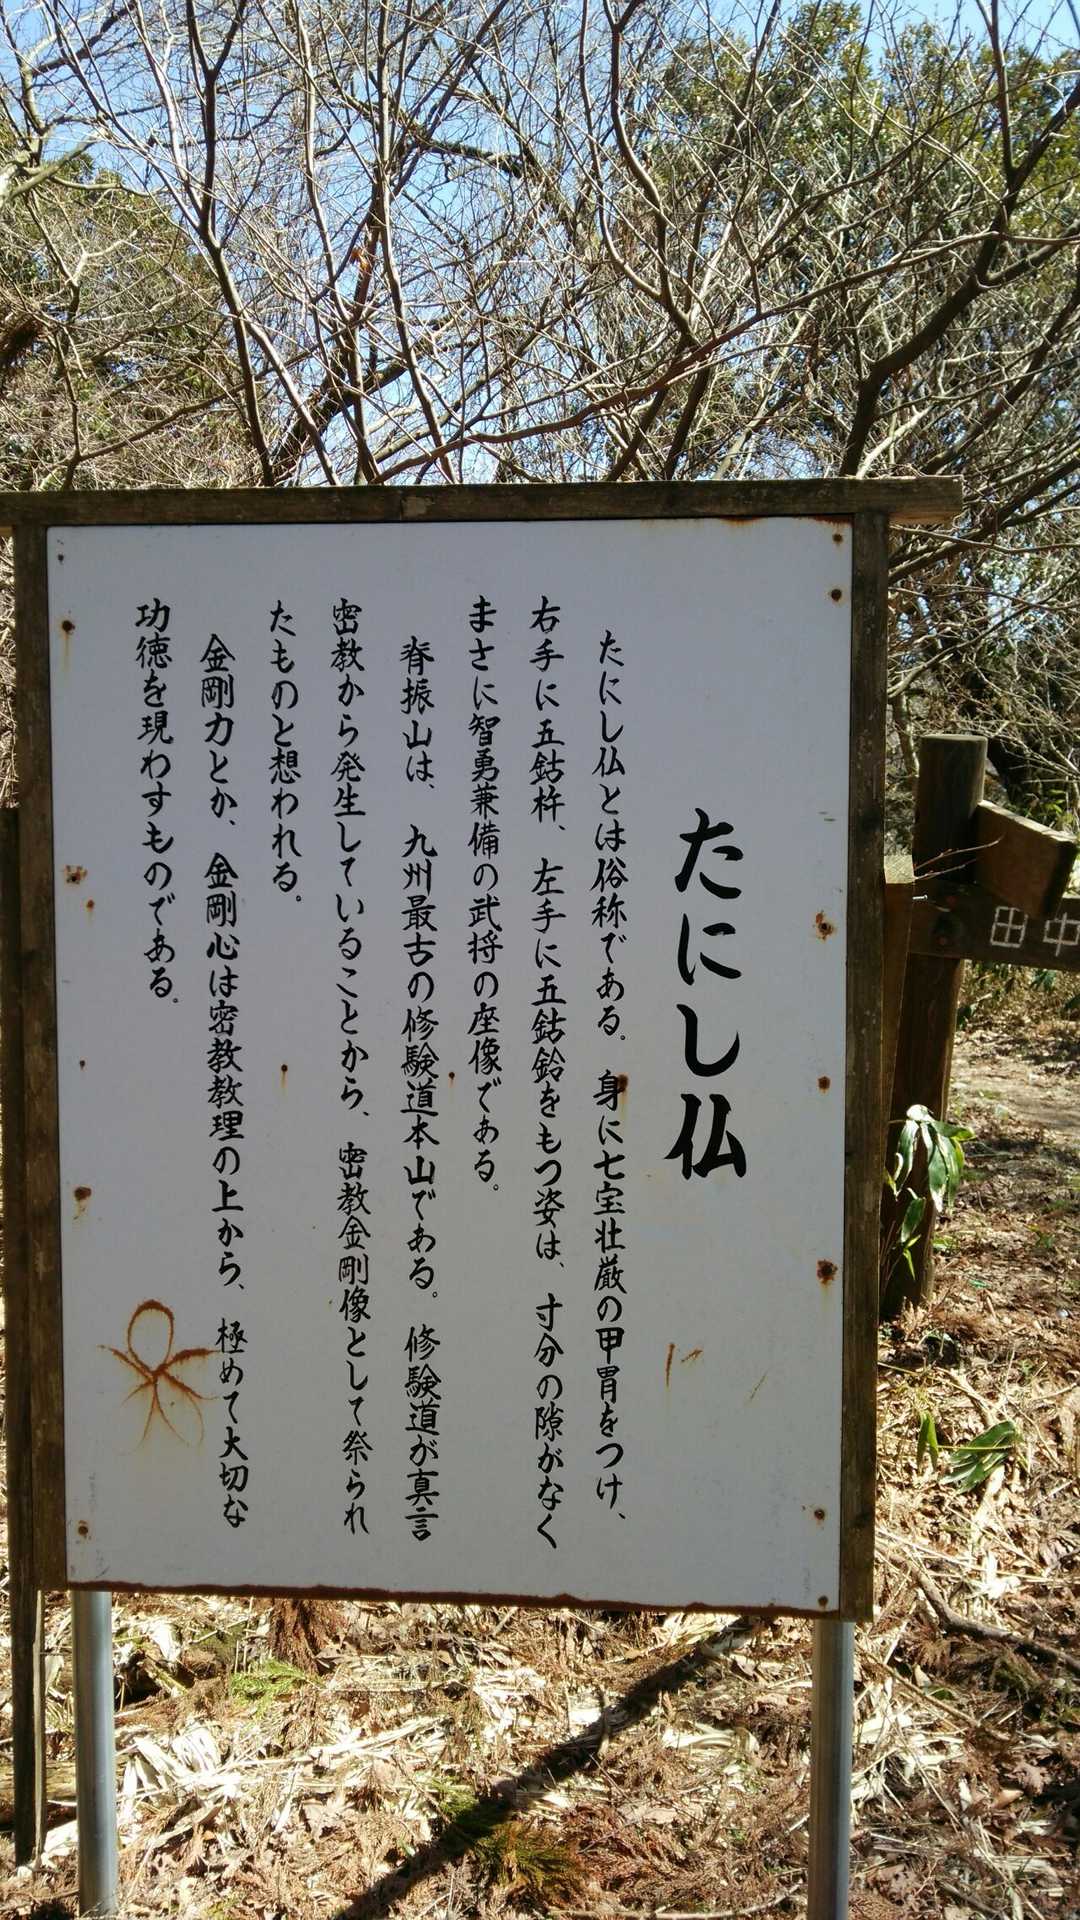 たにし仏
たにし仏とは俗称である。身に七宝壮厳の甲冑をつけ、
右手に五鈷杵、左手に五鈷鈴をもつ姿は、寸分の隙がなく
まさに智勇兼備の武将の座像である。
脊振山は、九州最古の修験道本山である。修験道が真言
密教から発生していることから、密教金剛像として祭られ
たものと想われる。
金剛力とか、金剛心は密教教理の上から、極めて大切な
功徳を現わすものである。
田中